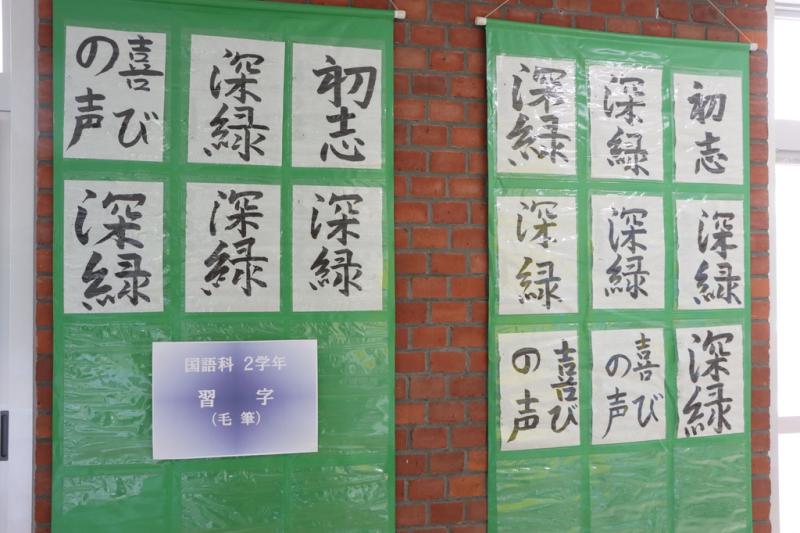 喜び
の声
深緑
初志
深緑
深緑
深緑
国語科 2学年
習 字
(毛 筆)
深緑
深緑
初志
深緑
深緑
深緑
喜び
の声
喜び
の声
深緑